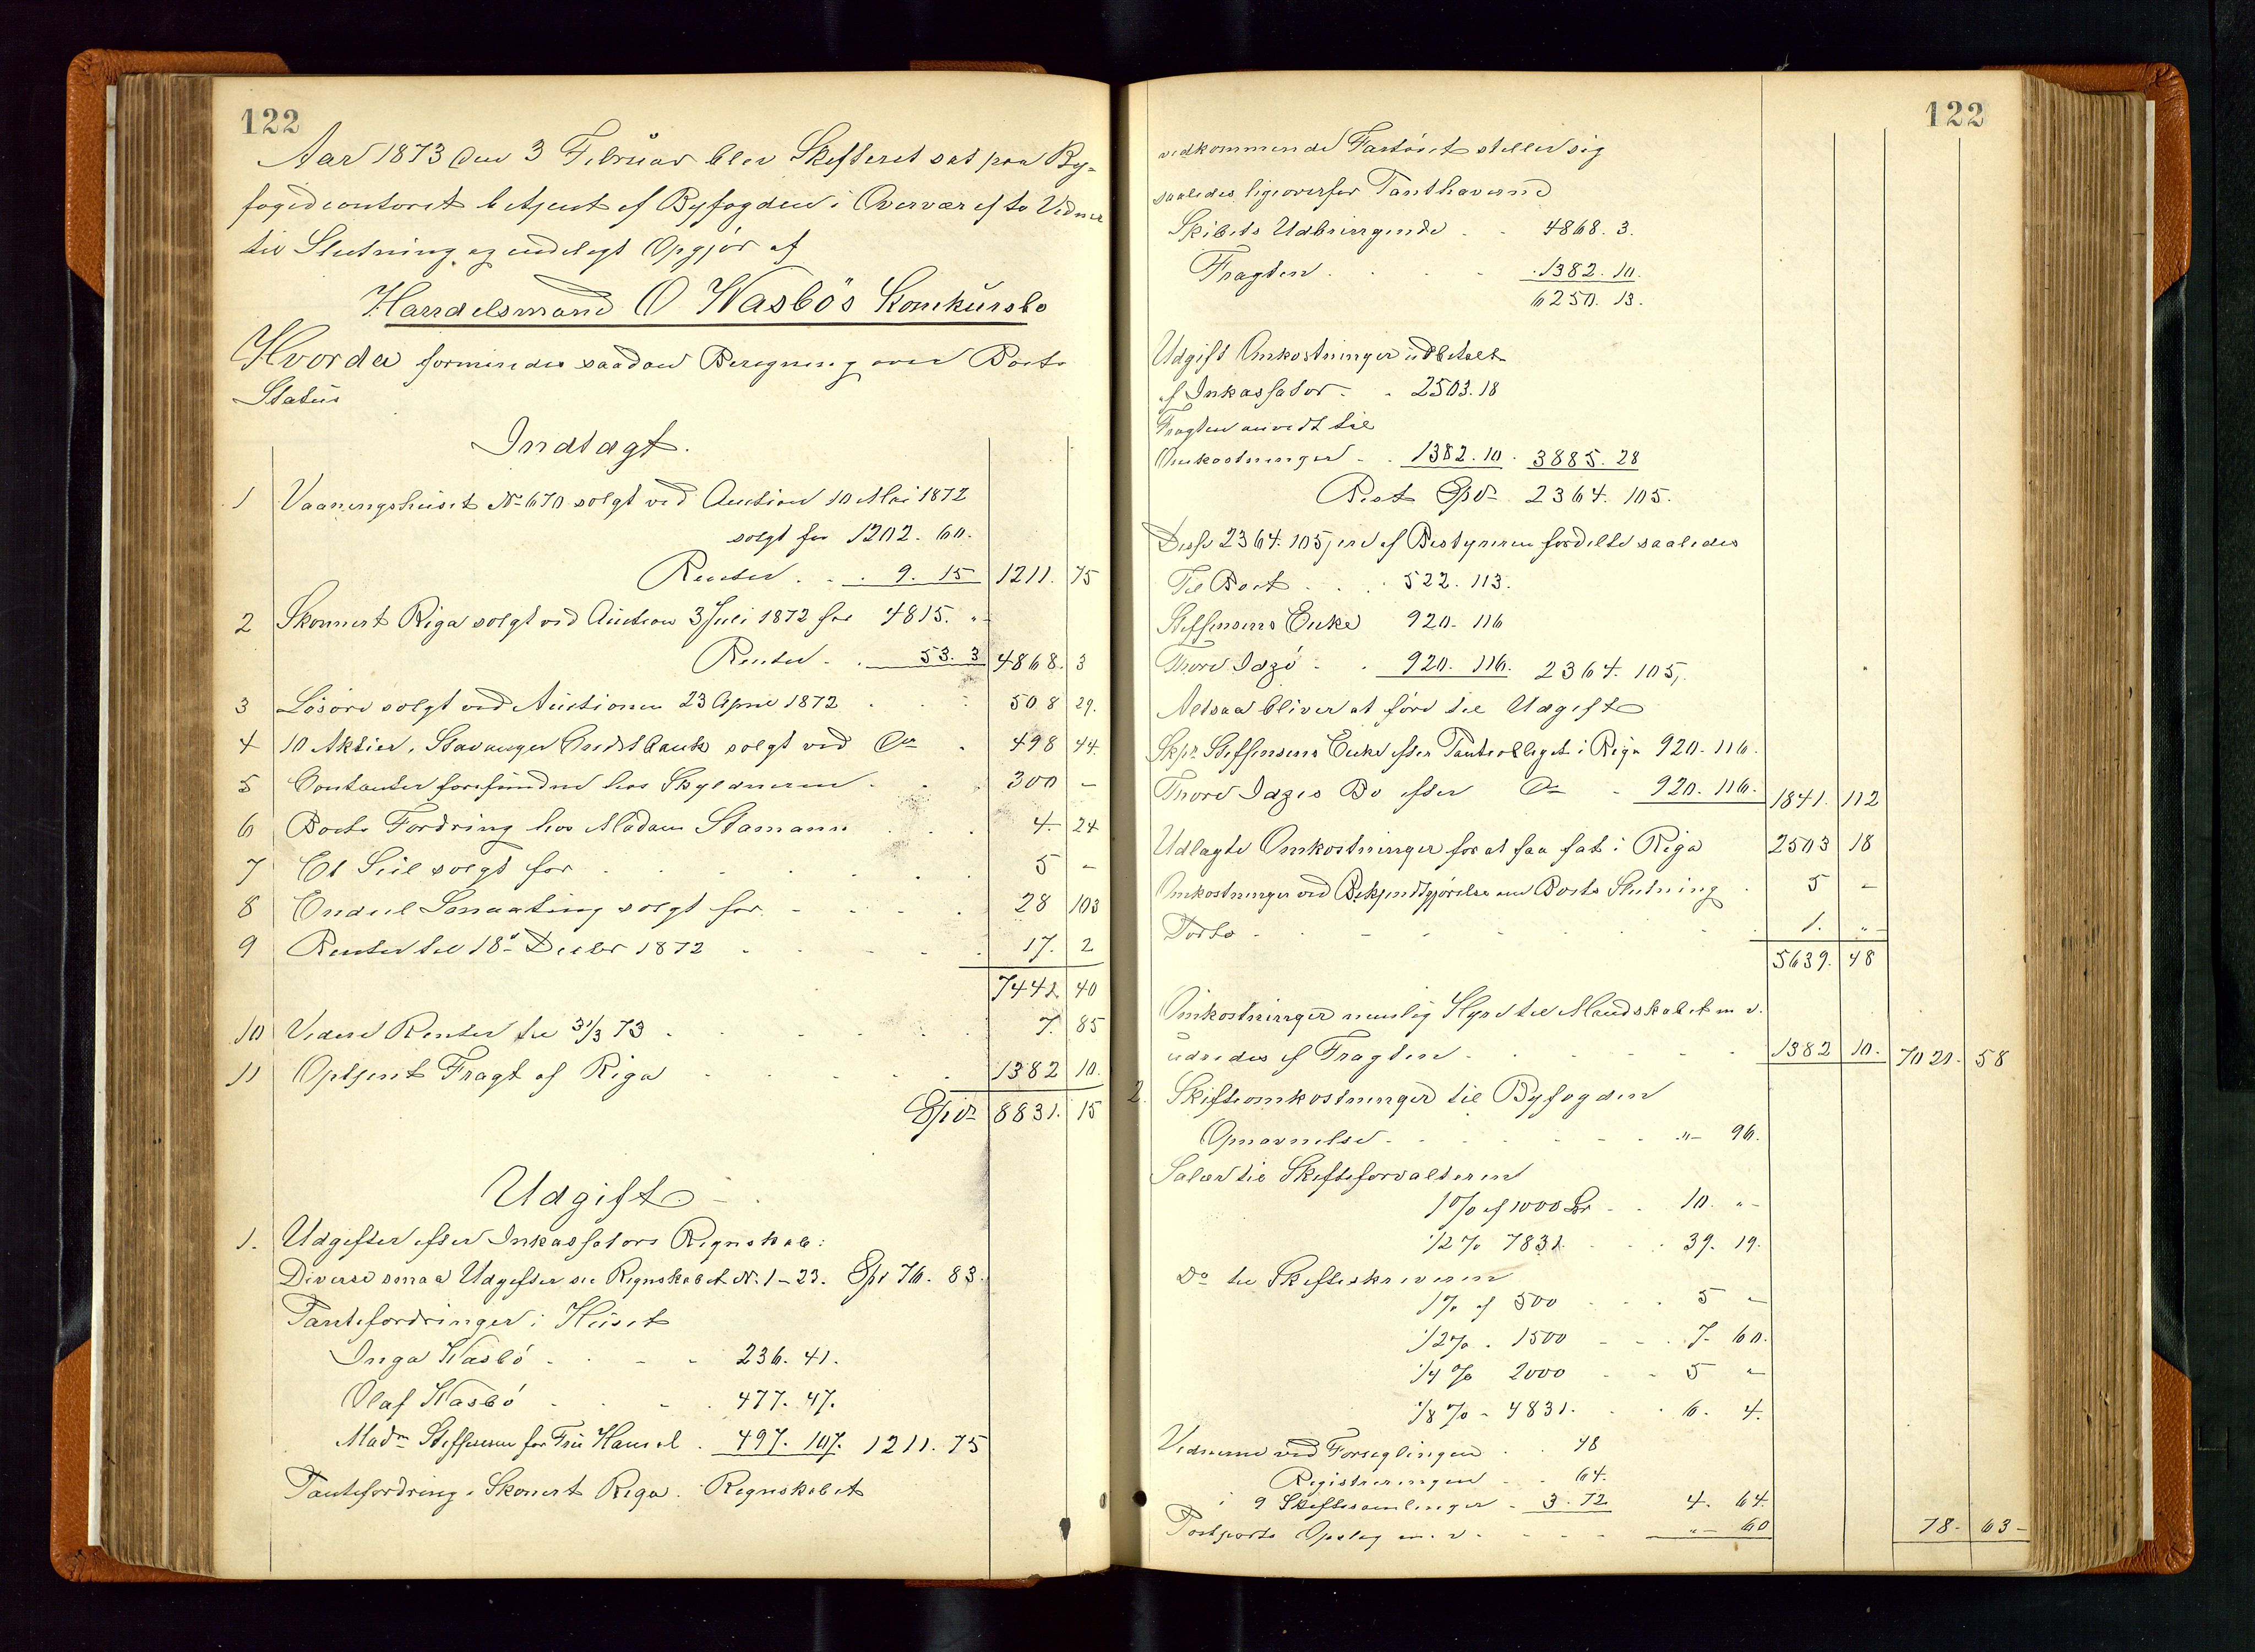 122
Aar 1873 den 3 Februar blev Skifteret sat paa By-
fogedcontoret betjent af Byfogden i Overvær af to Vidner
til Slutning og endeligt Opgjør af
Handelsmand O Wasbös Konkursbo
Hvorda formeredes saadan Beregning over Boets
Status
Indtægt.
1 Vaaningshuset No 670 solgt ved Auction 10 Mai 1872
solgt for 1202. 60.
Renter . . 9. 15 1211. 75
2 Skonnert Riga solgt ved Auction 3 Juli 1872 for 4815. "-
Renter . . 53. 3 4868. 3
3 Lösöre solgt ved Auctionen 23 April 1872 . . 508 29.
4 10 Aktier i Stavanger Creditbank solgt ved Do . 498 44.
5 Contanter forefundne hos Skyldneren . . 300 -
6 Boets Fordring hos Madam Stamann . . . 4. 24
7 Et Seil solgt for . . . . . 5 -
8 En deel solgt for . - . . . 28 103
9 Renter til 18de Decbr 1872 . . . . . 17. 2
7442 40
10 Videre Renter til 31/3 73 . . . . . 7. 85
11 Optjent Fragt af Riga . . . . . 1382 10.
Spdr 8831. 15
Udgift -
1. Udgifter efter Inkassators Regnskab:
Diverse smaa Udgifter se Regnskabet No. 1-23. Spd 76. 83.
Panteforderinger i Huset
Inga Wasbö . . . . 236. 41.
Olaf Wasbö . . . . 477. 47.
Madm Steffensen for Frü . 497. 107. 1211. 75
Pantefordring i Skonert Riga. Regnskabet
122
vedkommende Fartöiet stiller sig
saaledes ligeoverfor Panthaverne
Skibets Udbringende . . 4868. 3.
Fragten . . . . 1382. 10.
6250. 13.
Udgift Omkostninger udbetalt
af Inkassator . . 2503. 18
Fragten anvendt til
Omkostninger . . 1382. 10. 3885. 28
Rest Spdr 2364. 105.
Disse 2364. 105, ere af Bestyreren fordelte saaledes
Til Boet . . . 522. 113.
Steffensens Enke 920. 116
Thore Idzö . . 920. 116. 2364. 105,
Altsaa bliver at före til Udgift
Skpr Steffensens Enke efter Panteobligat i Riga 920. 116.
Thore Idzös Bo efter Do . 920. 116. 1841. 112
Udlagte Omkostninger for at faa fat i Riga 2503 18
Omkostninger ved Bekjendtgjörelse om Boets Slutning . 5 -
Porto . . . . . . . 1. "-
5639. 48
Omkostninger nemlig Hyre til Mandskabet m v.
udredes af Fragten . . . . . 1382 10. 7021. 58
2. Skifteomkostninger til Byfogden
Opnævnelse . . . . . . "- 96.
Salær til Skifteforvalteren
1% af 1000 Spr . . 10. "-
1/2% 7831 . . . 39. 19.
Do til Skifteskriveren
1% af 500 . . . 5 -
1/2% . 1500 . . . 7. 60.
1/4% 2000 . . 5 "
1/8% - 4831. . . 6. 4.
Vidnerne ved Forseglingen . . 48
Registreringen . . 64.
i 9 Skiftesamlinger . 3. 72 4. 64.
Postporto Opslag m. v. . . . . "- 60 78. 63-